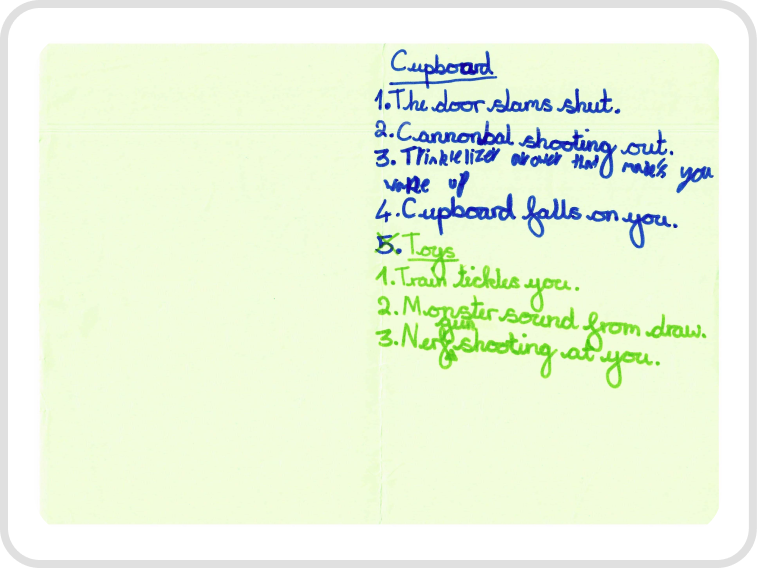 Cupboard
1. The door slams shut.
2. Cannonbal shooting out.
3. that makes you
wake up
4. Cupboard falls on you.
5. Toys
1. Train tickles you.
2. Monster sound from draw.
gun
3. Nerf shooting at you.